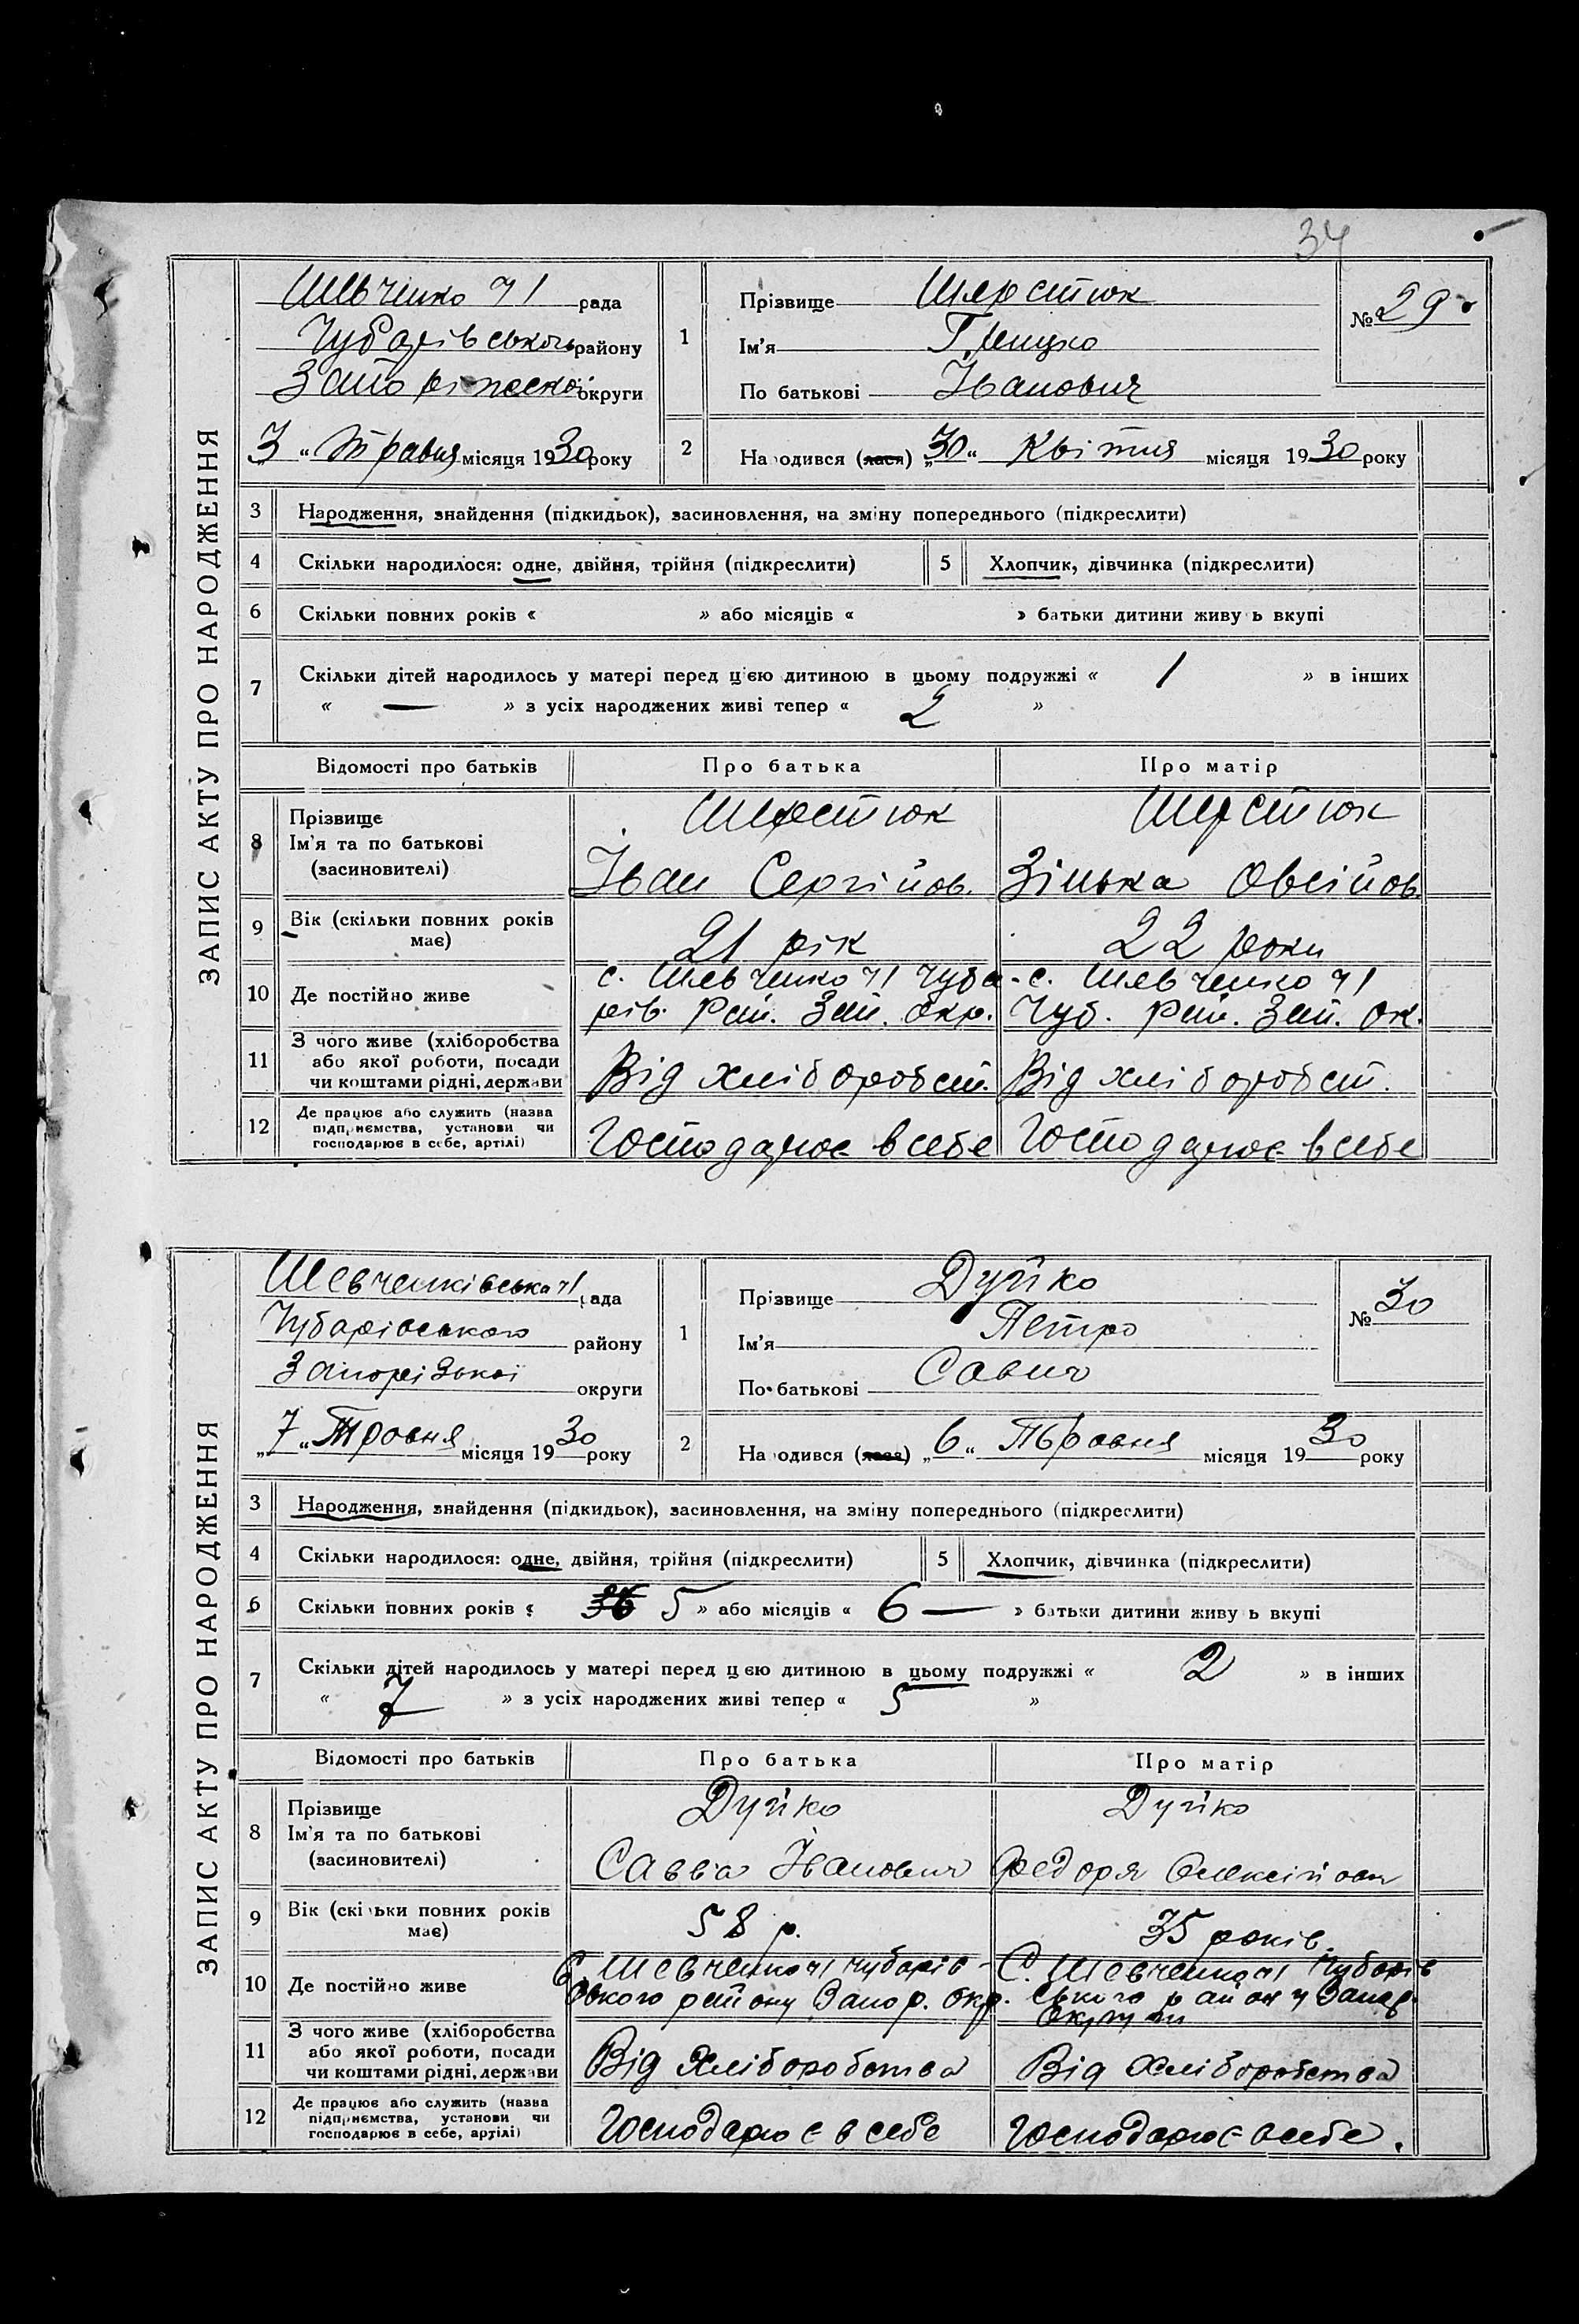 34
ЗАПИС АКТУ ПРО НАРОДЖЕННЯ
Шевченко ч 1 рада
Чубарівського району
округи
3 " Травня місяця 1930 року
1
Прізвище Шерстюк
Ім'я Грицко
По батькові Іванович
№ 29
2
Народився (лася) „30 " Квітня місяця 1930 року
3 Народження, знайдення (підкидьок), засиновлення, на зміну попереднього (підкреслити)
4 Скільки народилося: одне, двійня, трійня (підкреслити) 5 Хлопчик, дівчинка (підкреслити)
6 Скільки повних років « » або місяців « » батьки дитини живуть вкупі
7 Скільки дітей народилось у матері перед цією дитиною в цьому подружжі « 1 » в інших
« — » з усіх народжених живі тепер « 2 »
Відомості про батьків Про батька Про матір
8 Прізвище
Ім'я та по батькові
(засиновителі)
Шерстюк
Іван Сергійов.
Шерстюк
Зінька Овсійов.
9 Вік (скільки повних років
має)
21 рік
22 роки
10 Де постійно живе
с. Шевченко ч 1 Чуба-
рів. Рай. Зап. окр.
с. Шевченко ч 1
Чуб. Рай. Зап. Ок.
11 З чого живе (хліборобства
або якої роботи, посади
чи коштами рідні, держави
Від хліборобст.
Від хліборобст.
12 Де працює або служить (назва
підприємства, установи чи
господарює в себе, артілі)
Господарює в себе
Господарює в себе
ЗАПИС АКТУ ПРО НАРОДЖЕННЯ
Шевченківська ч 1 рада
Чубарівського району
Запорізької округи
„7 " Травня місяця 1930 року
1
Прізвище Дуйко
Ім'я Петро
По батькові Савич
№ 30
2
Народився (лася) „6 " Травня місяця 1930 року
3 Народження, знайдення (підкидьок), засиновлення, на зміну попереднього (підкреслити)
4 Скільки народилося: одне, двійня, трійня (підкреслити) 5 Хлопчик, дівчинка (підкреслити)
6 Скільки повних років « 5 » або місяців « 6 — » батьки дитини живуть вкупі
7 Скільки дітей народилось у матері перед цією дитиною в цьому подружжі « 2 » в інших
« 7 » з усіх народжених живі тепер « 5 »
Відомості про батьків Про батька Про матір
8 Прізвище
Ім'я та по батькові
(засиновителі)
Дуйко
Савва Іванович
Дуйко
Федоря Олексійовн
9 Вік (скільки повних років
має)
58 р.
35 років.
10 Де постійно живе
С. Шевченко ч 1 Чубарів-
ського району Запор. окр.
С. Шевченко ч 1 Чубарів
ського району Запор.
Округи
11 З чого живе (хліборобства
або якої роботи, посади
чи коштами рідні, держави
Від Хліборобства
Від Хліборобства
12 Де працює або служить (назва
підприємства, установи чи
господарює в себе, артілі)
Господарює в себе
Господарює в себе.